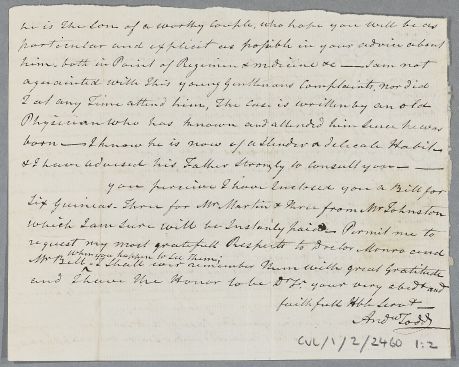 he is the Son of a worthy Couple, who hope you will be as
particular and explicit as possible in your advice about
him, both in Point of Regimen & medicine &c — I am not
acquainted with this young Gentlemans Complaints, nor did
I at any Time attend him, The Case is written by an old
Physician who has known and attended him Since he was
born — I know he is now of a Slender & delicate Habit
& I have advised his Father Strongly to consult you —
you perceive I have Inclosed you a Bill for
Six Guineas. Three for Mr Martin & Three from Mr Johnston
which I am Sure will be Instantly paid — Permit me to
request my most gratefull Respects to Doctor Monro and
when you happen to See them,
Mr Bell — I Shall ever remember Them with great Gratitude
and I have The Honor to be Dr Sr your very obedt and
faithfull Hble Servt —
Andw Todd
CUL/1/2/2460 1:2